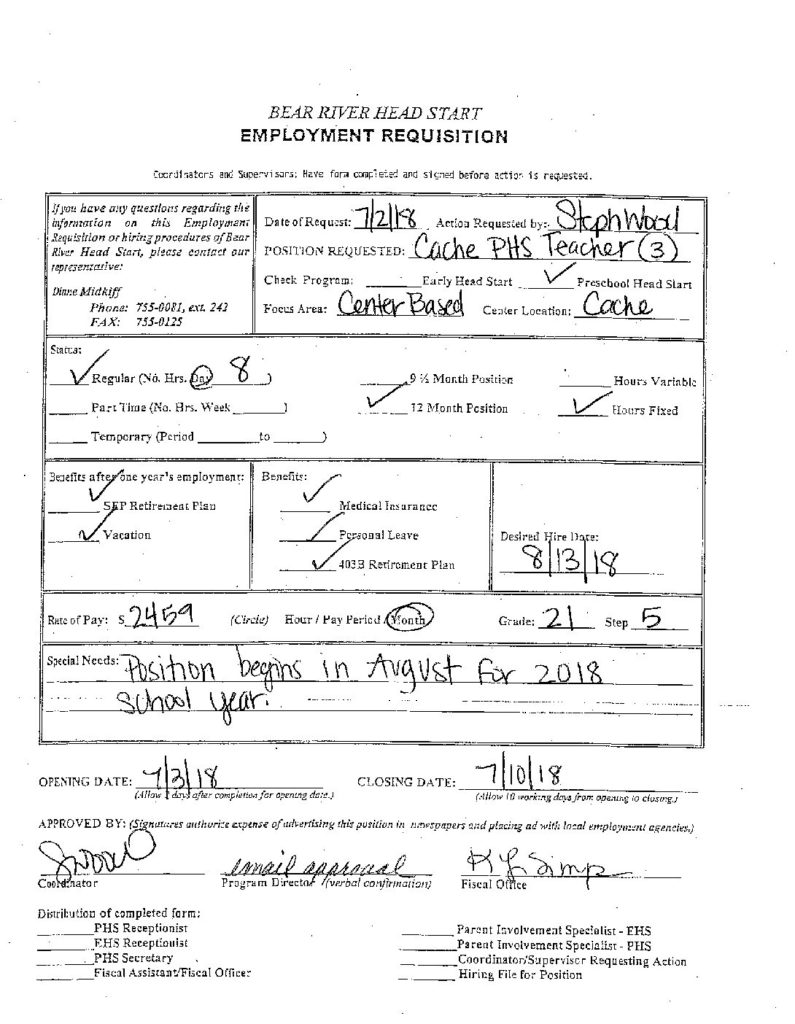 BEAR RIVER HEAD START
EMPLOYMENT REQUISITION
Coordinators and Supervisors: Have form completed and signed before action is requested.
If you have any questions regarding the
information on this Employment
Requisition or hiring procedures of Bear
River Head Start, please contact our
representative:
Diane Midkiff
Phone: 755-0081, ext. 242
FAX: 755-0125
Date of Request: 7/2/18 Action Requested by: Steph Wood
POSITION REQUESTED: Cache PHS Teacher (3)
Check Program: ______ Early Head Start ___✓___ Preschool Head Start
Focus Area: Center Based Center Location: Cache
Status:
✓ Regular (No. Hrs. Day 8 )
______ Part Time (No. Hrs. Week ________)
______ Temporary (Period ________ to ______)
______ 9 ½ Month Position
✓ 12 Month Position
______ Hours Variable
✓ Hours Fixed
Benefits after one year's employment:
✓ SEP Retirement Plan
✓ Vacation
Benefits:
✓ Medical Insurance
✓ Personal Leave
✓ 403B Retirement Plan
Desired Hire Date:
8/13/18
Rate of Pay: $ 2459 (Circle) Hour / Pay Period / Month Grade: 21 Step 5
Special Needs: Position begins in August for 2018
school year.
OPENING DATE: 7/3/18 CLOSING DATE: 7/10/18
(Allow days after completion for opening date.) (Allow 10 working days from opening to closing.)
APPROVED BY: (Signatures authorize expense of advertising this position in newspapers and placing ad with local employment agencies.)
SWood email approval
Coordinator Program Director /(verbal confirmation) Fiscal Office
Distribution of completed form:
______ PHS Receptionist
______ EHS Receptionist
______ PHS Secretary
______ Fiscal Assistant/Fiscal Officer
______ Parent Involvement Specialist - EHS
______ Parent Involvement Specialist - PHS
______ Coordinator/Supervisor Requesting Action
______ Hiring File for Position